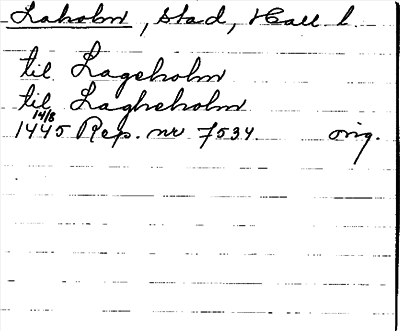 Laholm, stad, Hall l.
til Lageholm
til Lagheholm
1445 14/8 Rep. nr 7534. orig.